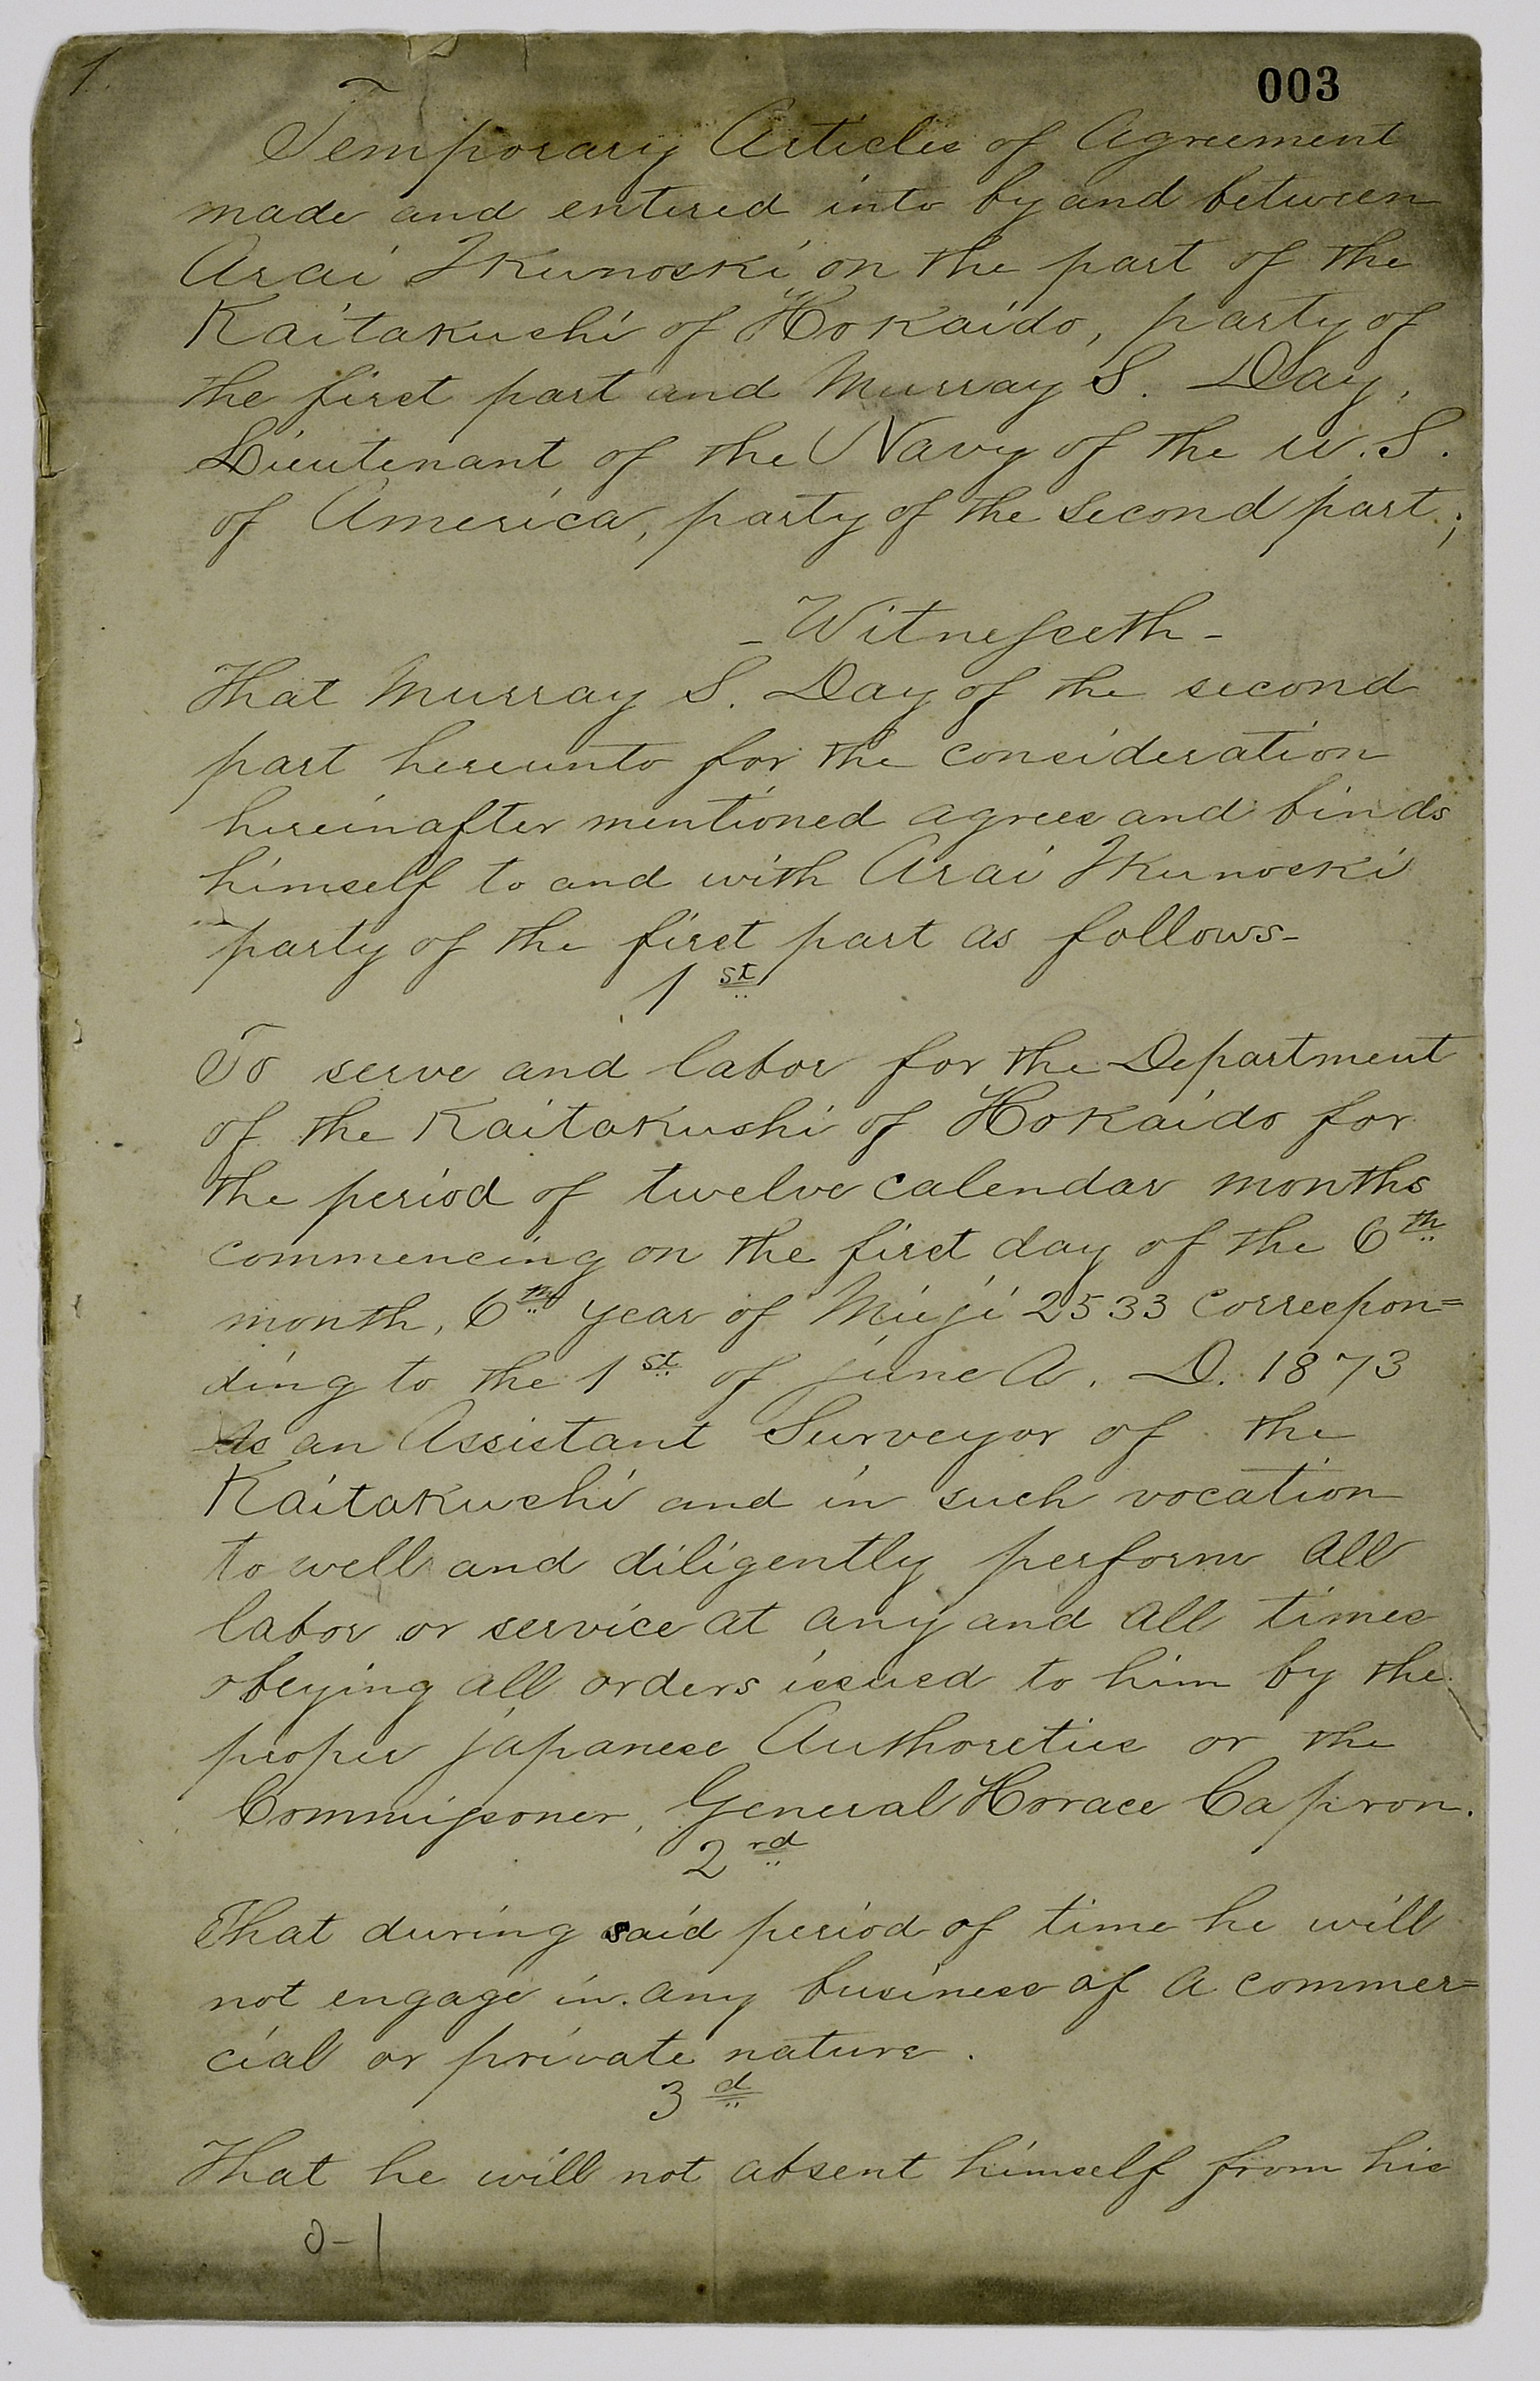 1.
003
Temporary Articles of Agreement
made and entered into by and between
Arai Ikunoski on the part of the
Kaitakushi of Hokaido, party of
the first part and Murray S. Day,
Lieutenant of the Navy of the U. S.
of America, party of the second part;
- Witnesseth -
That Murray S. Day of the second
part hereunto for the consideration
hereinafter mentioned agrees and binds
himself to and with Arai Ikunoski
party of the first part as follows-
1st
To serve and labor for the Department
of the Kaitakushi of Hokaido for
the period of twelve calendar months
commencing on the first day of the 6th
month, 6th year of Mieji 2533 correspon=
ding to the 1st of june A. D. 1873
As an Assistant Surveyor of the
Kaitakushi and in such vocation
to well and diligently perform all
labor or service at any and all times
obeying all orders issued to him by the
proper japanese Authoreties or the
Commissoner, General Horace Capron.
2rd
That during said period of time he will
not engage in any business of a commer=
cial or private nature.
3d
That he will not absent himself from his
0-1